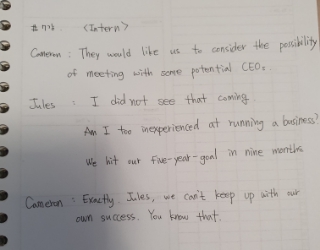 #74. <Intern>
Cameron : They would like us to consider the possibility
of meeting with some potential CEOs.
Jules : I did not see that coming.
Am I too inexperienced at running a business?
We hit our five-year-goal in nine months.
Cameron : Exactly. Jules, we can't keep up with our
own success. You know that.